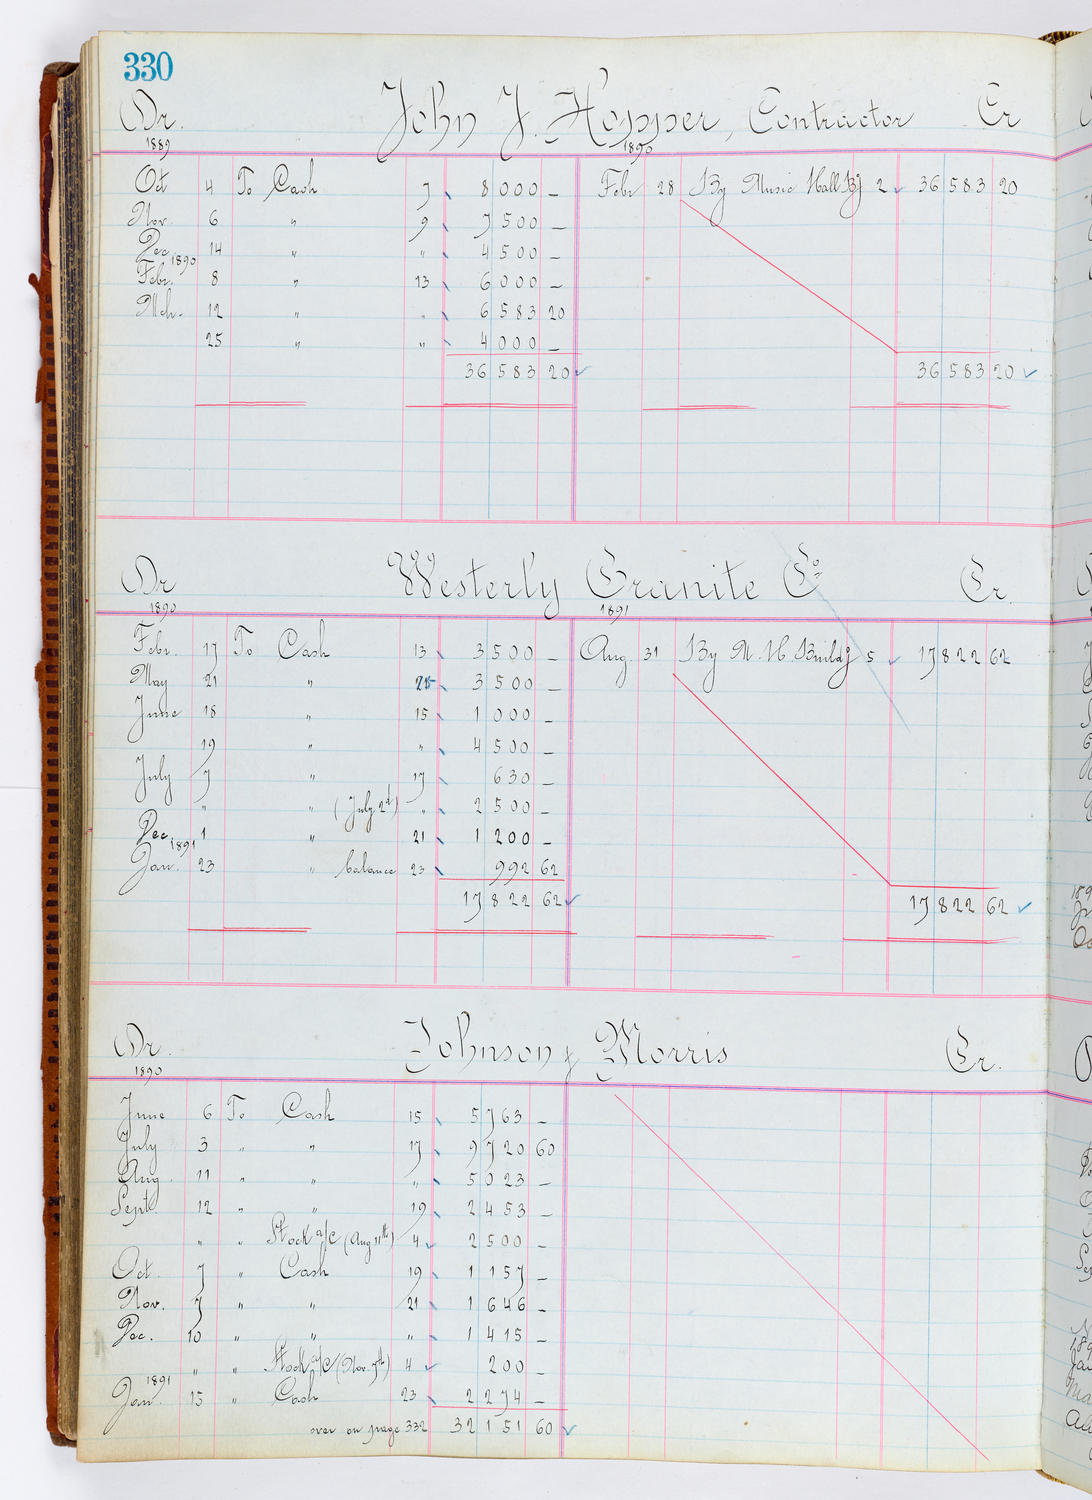 330
Dr. John J. Hopper, Contractor Cr
1889 1890
Oct 4 To Cash 7 8000 — Febr 28 By Music Hall Bg 2 36583 20
Nov. 6 " 9 7500 —
Dec 14 " " 4500 —
1890
Febr. 8 " 13 6000 —
Mch. 12 " " 6583 20
25 " " 4000 —
36583 20 36583 20
Dr Westerly Granite Co Cr.
1890 1891
Febr. 17 To Cash 13 3500 — Aug. 31 By M. H. Buildg 5 17822 62
May 21 " 3500 —
June 18 " 15 1000 —
19 " " 4500 —
July 7 " 17 630 —
" " (July 2d) " 2500 —
Dec 1 " 21 1200 —
1891
Jan. 23 " balance 23 992 62
17822 62 17822 62
Dr. Johnson & Morris Cr.
1890
June 6 To Cash 15 5763 —
July 3 " " 17 9720 60
Aug. 11 " " " 5023 —
Sept. 12 " " 19 2453 —
" " Stock a/c (Aug 11th) 4 2500 —
Oct. 7 " Cash 19 1157 —
Nov. 7 " " 21 1646 —
Dec. 10 " " " 1415 —
" " Stock a/c (Nov. 7th) 4 200 —
1891
Jan. 15 " Cash 23 2274 —
over on page 332 32151 60